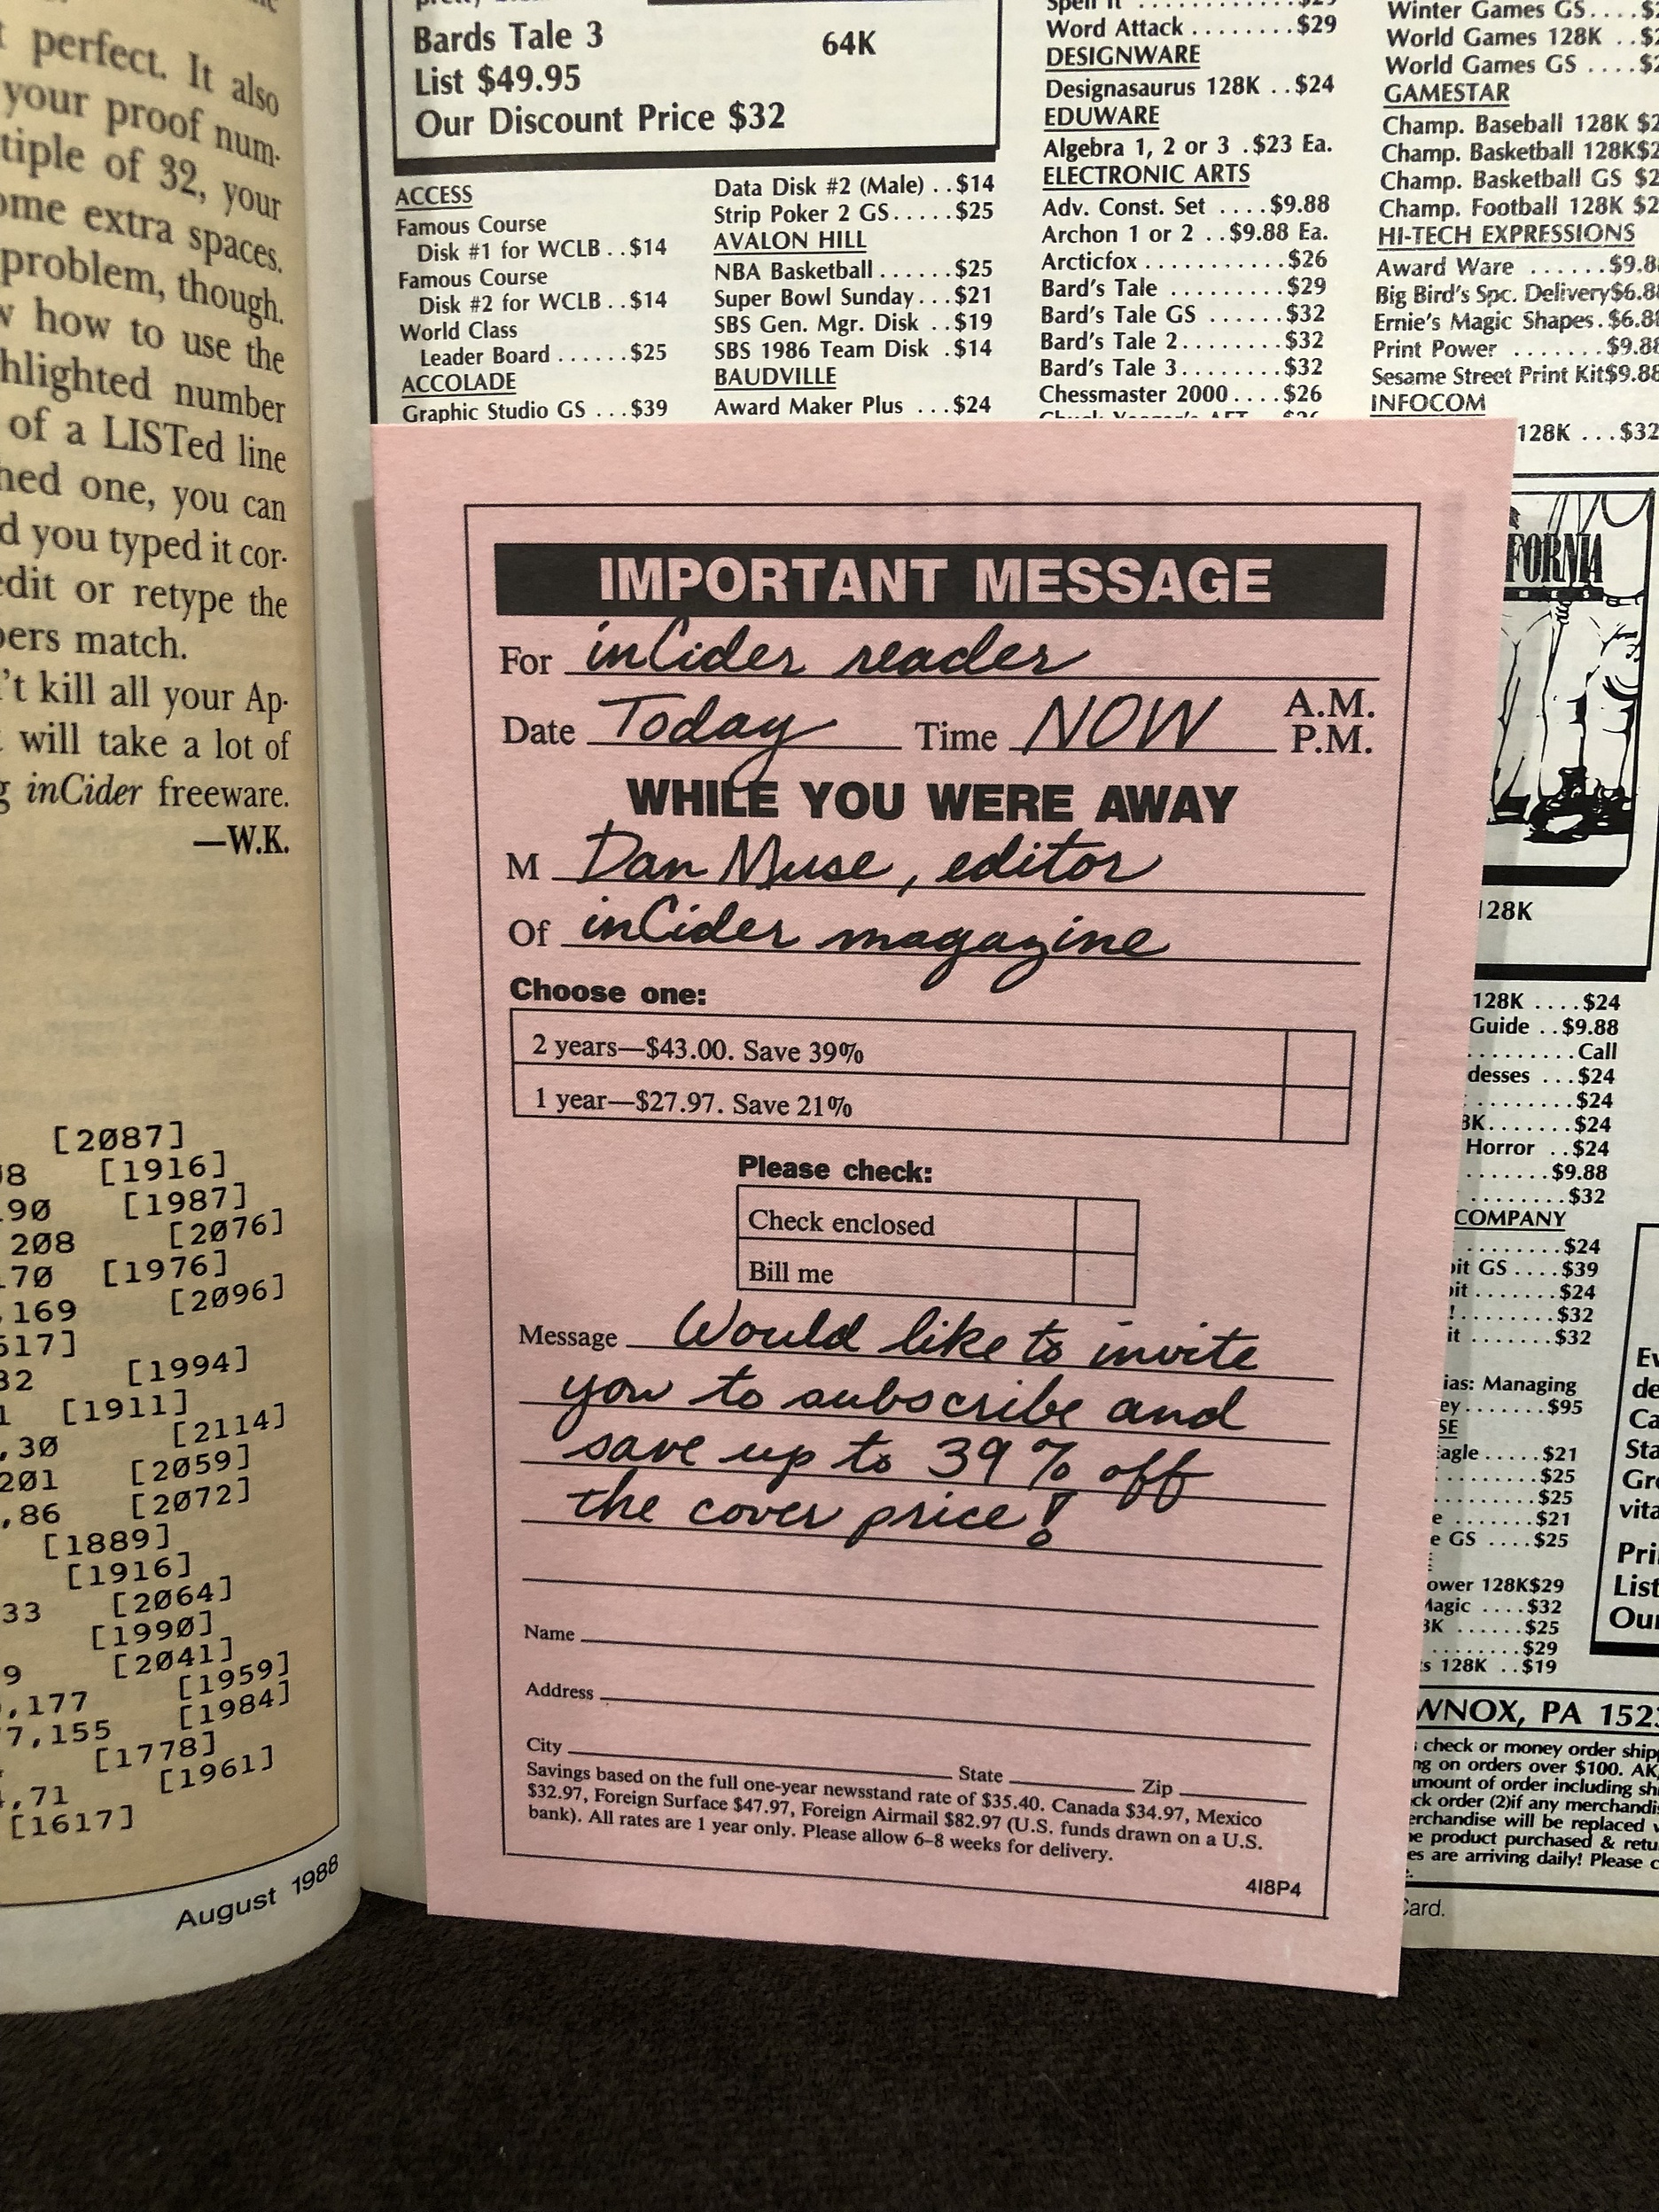 perfect. It also
your proof num-
tiple of 32, your
ome extra spaces.
problem, though.
how to use the
hlighted number
of a LISTed line
hed one, you can
d you typed it cor-
edit or retype the
bers match.
't kill all your Ap-
will take a lot of
g inCider freeware.
—W.K.
[2087]
[1916]
190 [1987]
208 [2076]
170 [1976]
,169 [2096]
617]
32 [1994]
1 [1911]
,30 [2114]
201 [2059]
,86 [2072]
[1889]
[1916]
33 [2064]
[1990]
9 [2041]
,177 [1959]
7,155 [1984]
[1778]
,71 [1961]
[1617]
August 1988
Bards Tale 3 64K
List $49.95
Our Discount Price $32
ACCESS
Famous Course
Disk #1 for WCLB..$14
Famous Course
Disk #2 for WCLB..$14
World Class
Leader Board ......$25
ACCOLADE
Graphic Studio GS ...$39
Data Disk #2 (Male) ..$14
Strip Poker 2 GS.....$25
AVALON HILL
NBA Basketball.......$25
Super Bowl Sunday...$21
SBS Gen. Mgr. Disk ..$19
SBS 1986 Team Disk .$14
BAUDVILLE
Award Maker Plus ...$24
Spell It ............$29
Word Attack ........$29
DESIGNWARE
Designasaurus 128K ..$24
EDUWARE
Algebra 1, 2 or 3 .$23 Ea.
ELECTRONIC ARTS
Adv. Const. Set ....$9.88
Archon 1 or 2 ..$9.88 Ea.
Arcticfox...........$26
Bard's Tale .........$29
Bard's Tale GS ......$32
Bard's Tale 2........$32
Bard's Tale 3........$32
Chessmaster 2000....$26
Winter Games GS....$2
World Games 128K ..$2
World Games GS ....$2
GAMESTAR
Champ. Baseball 128K $2
Champ. Basketball 128K$2
Champ. Basketball GS $2
Champ. Football 128K $2
HI-TECH EXPRESSIONS
Award Ware ......$9.8
Big Bird's Spc. Delivery$6.8
Ernie's Magic Shapes.$6.8
Print Power .......$9.88
Sesame Street Print Kit$9.88
INFOCOM
128K ...$32
IMPORTANT MESSAGE
For inCider reader
Date Today Time NOW A.M.
P.M.
WHILE YOU WERE AWAY
M Dan Muse, editor
Of inCider magazine
Choose one:
2 years—$43.00. Save 39%
1 year—$27.97. Save 21%
Please check:
Check enclosed
Bill me
Message Would like to invite
you to subscribe and
save up to 39% off
the cover price!
Name
Address
City State Zip
Savings based on the full one-year newsstand rate of $35.40. Canada $34.97, Mexico
$32.97, Foreign Surface $47.97, Foreign Airmail $82.97 (U.S. funds drawn on a U.S.
bank). All rates are 1 year only. Please allow 6–8 weeks for delivery.
4I8P4
FORNIA
128K
128K ....$24
Guide ..$9.88
.........Call
desses ...$24
........$24
8K.......$24
Horror ..$24
.......$9.88
........$32
COMPANY
........$24
it GS ....$39
it........$24
!........$32
it .......$32
ias: Managing
ey.......$95
SE
Eagle.....$21
........$25
.........$25
e .......$21
e GS ....$25
ower 128K$29
Magic ....$32
8K ......$25
.........$29
s 128K ..$19
Ev
de
Ca
Sta
Gre
vita
Pri
List
Our
WNOX, PA 1523
check or money order ship
ng on orders over $100. AK,
amount of order including sh
ck order (2)if any merchandi
erchandise will be replaced
e product purchased & retu
es are arriving daily! Please c
Card.